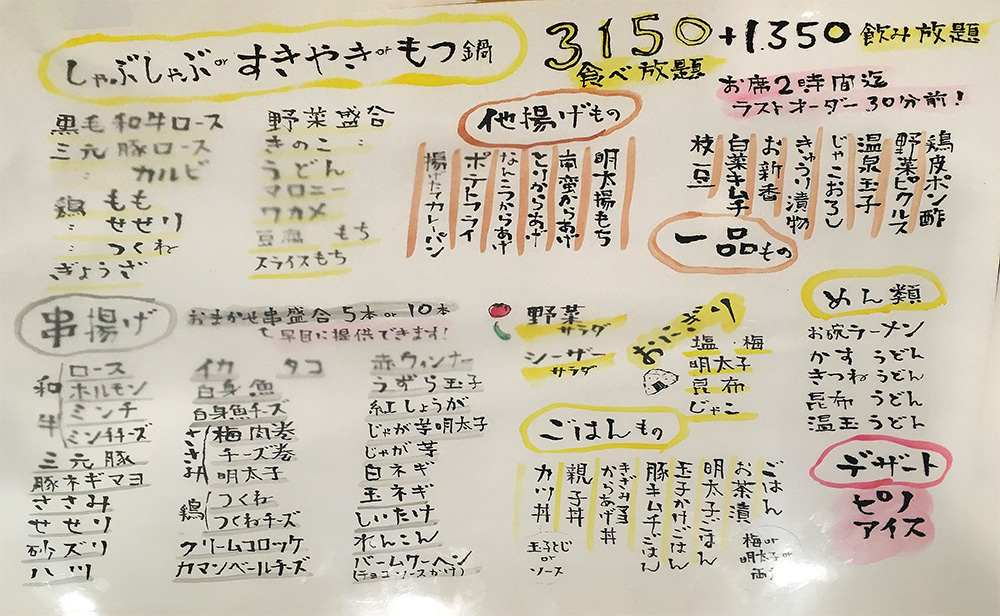 しゃぶしゃぶ or すきやき or もつ鍋
3150 +1.350 飲み放題
食べ放題
お席2時間迄
ラストオーダー30分前!
黒毛和牛ロース
三元豚ロース
〃 カルビ
鶏 もも
〃 せせり
〃 つくね
ぎょうざ
野菜盛合
きのこ 〃
うどん
マロニー
ワカメ
豆腐 もち
スライスもち
他揚げもの
明太揚もち
南蛮からあげ
とりからあげ
なんこつからあげ
ポテトフライ
揚げたてカレーパン
一品もの
鶏皮ポン酢
野菜ピクルス
温泉玉子
じゃこおろし
きゅうり漬物
お新香
白菜キムチ
枝豆
串揚げ
おまかせ串盛合 5本 or 10本
早目に提供できます!
和牛
ロース
ホルモン
ミンチ
ミンチチーズ
三元豚
豚ネギマヨ
ささみ
せせり
砂ズリ
ハツ
イカ タコ
白身魚
白身魚チーズ
ささみ
梅肉巻
チーズ巻
明太子
鶏
つくね
つくねチーズ
クリームコロッケ
カマンベールチーズ
赤ウィンナー
うずら玉子
紅しょうが
じゃが芋明太子
じゃが芋
白ネギ
玉ネギ
しいたけ
れんこん
バームクーヘン
(チョコソースかけ)
野菜
サラダ
シーザー
サラダ
おにぎり
塩・梅
明太子
昆布
じゃこ
ごはんもの
ごはん
お茶漬
梅 or
明太子 or
明太子ごはん
玉子かけごはん
豚キムチごはん
からあげ丼
親子丼
カツ丼
玉子とじ
or
ソース
めん類
お碗ラーメン
かす うどん
きつねうどん
昆布 うどん
温玉うどん
デザート
ピノ
アイス